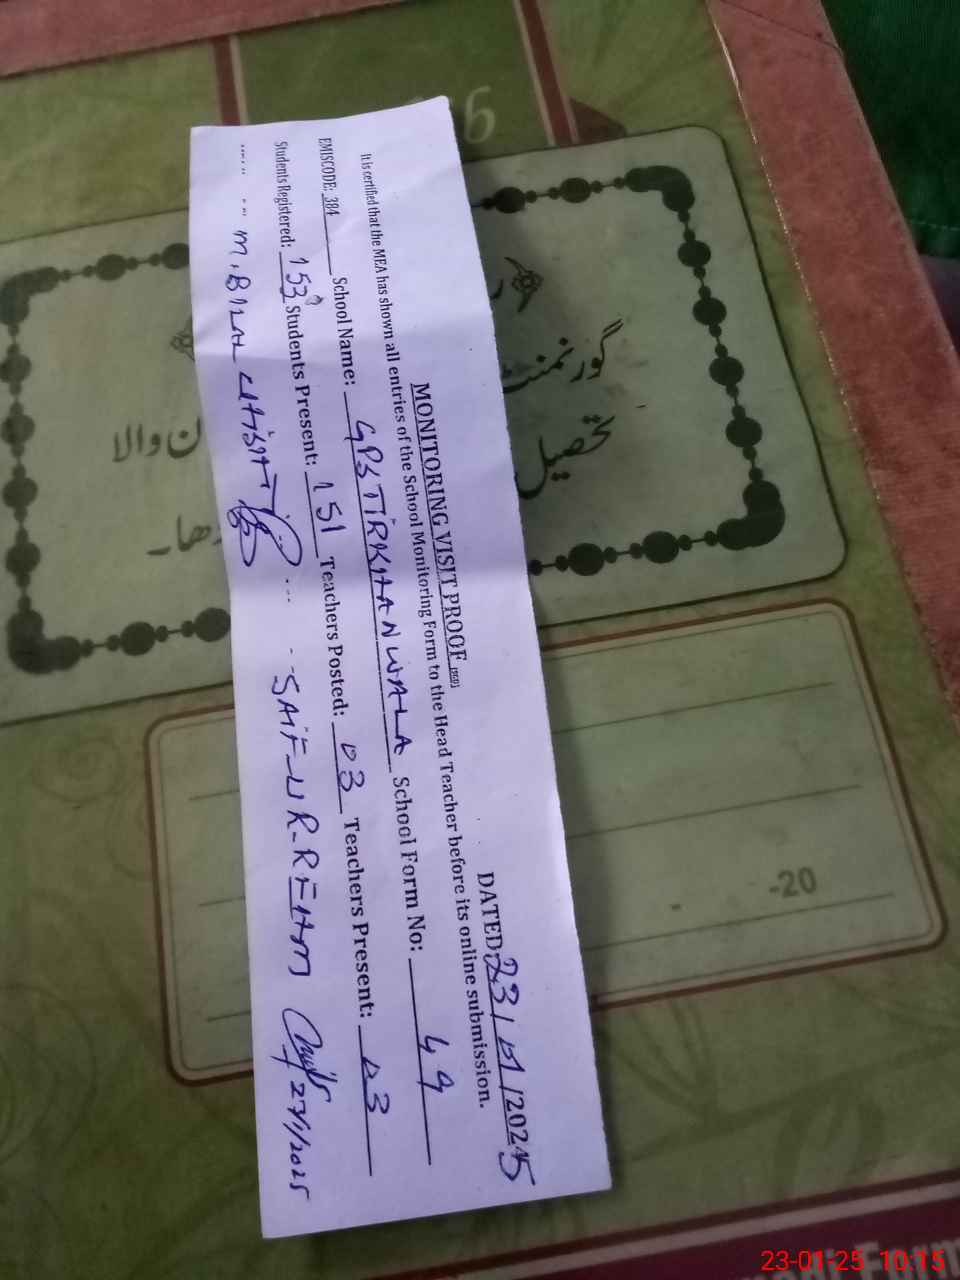 MONITORING VISIT PROOF
DATED: 23/01/2025
It is certified that the MEA has shown all entries of the School Monitoring Form to the Head Teacher before its online submission.
EMISCODE: 384 School Name: GPS TIRKHANWALA School Form No: 49
Students Registered: 153 Students Present: 151 Teachers Posted: 03 Teachers Present: 03
M. BILAL SAIF-UR-REHM
23/1/2025
گورنمنٹ
تحصیل
ن والا
-20
23-01-25 10:15